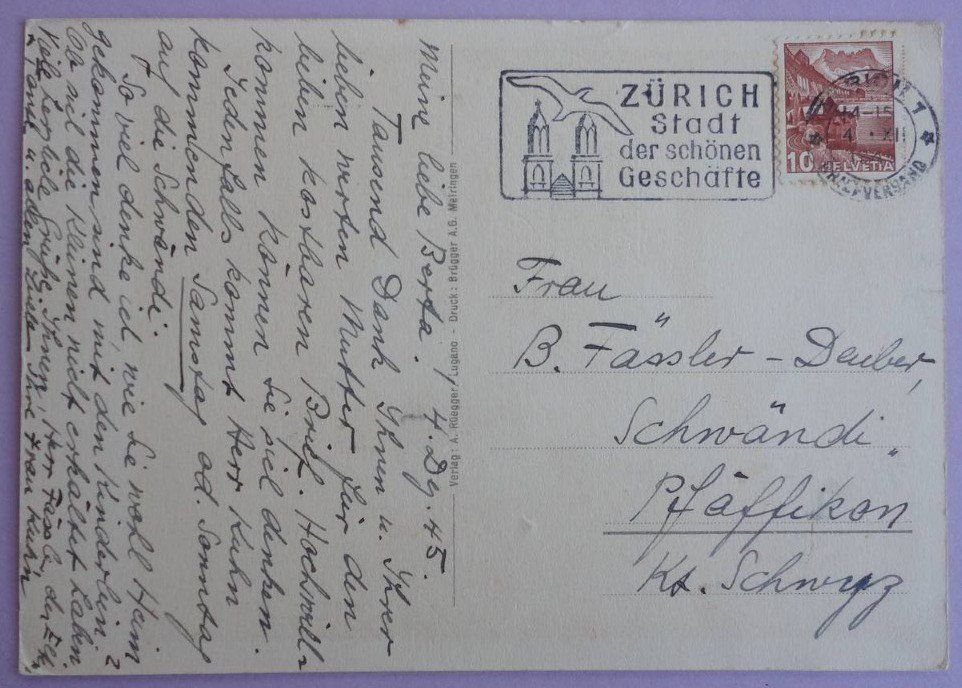 Meine liebe Berta. 4. Dz. 45.
Tausend Dank Ihnen u. Ihrer
lieben werten Mutter für den
lieben kostbaren Brief. Hochwill-
kommen können Sie sich denken.
Jedenfalls kommt Herr Kuhn
kommenden Samstag od. Sonntag
auf die Schwändi.
So viel denke ich, wie Sie wohl Heim
gekommen sind mit den Kinderlein?
Ob sich die Kleinen nicht erkältet haben.
Viele herzliche Grüße Ihnen, Herr Fässler, den
u. allen Ihre Frau Kuhn
Verlag: A. Rüegger, Lugano. - Druck: Brügger A.G. Meiringen
ZÜRICH
Stadt
der schönen
Geschäfte
14-15
4. XII
BRIEFVERSAND
10 HELVETIA
Frau
B. Fässler - Dauber,
Schwändi
Pfäffikon
Kt. Schwyz